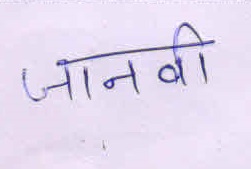 जानवी